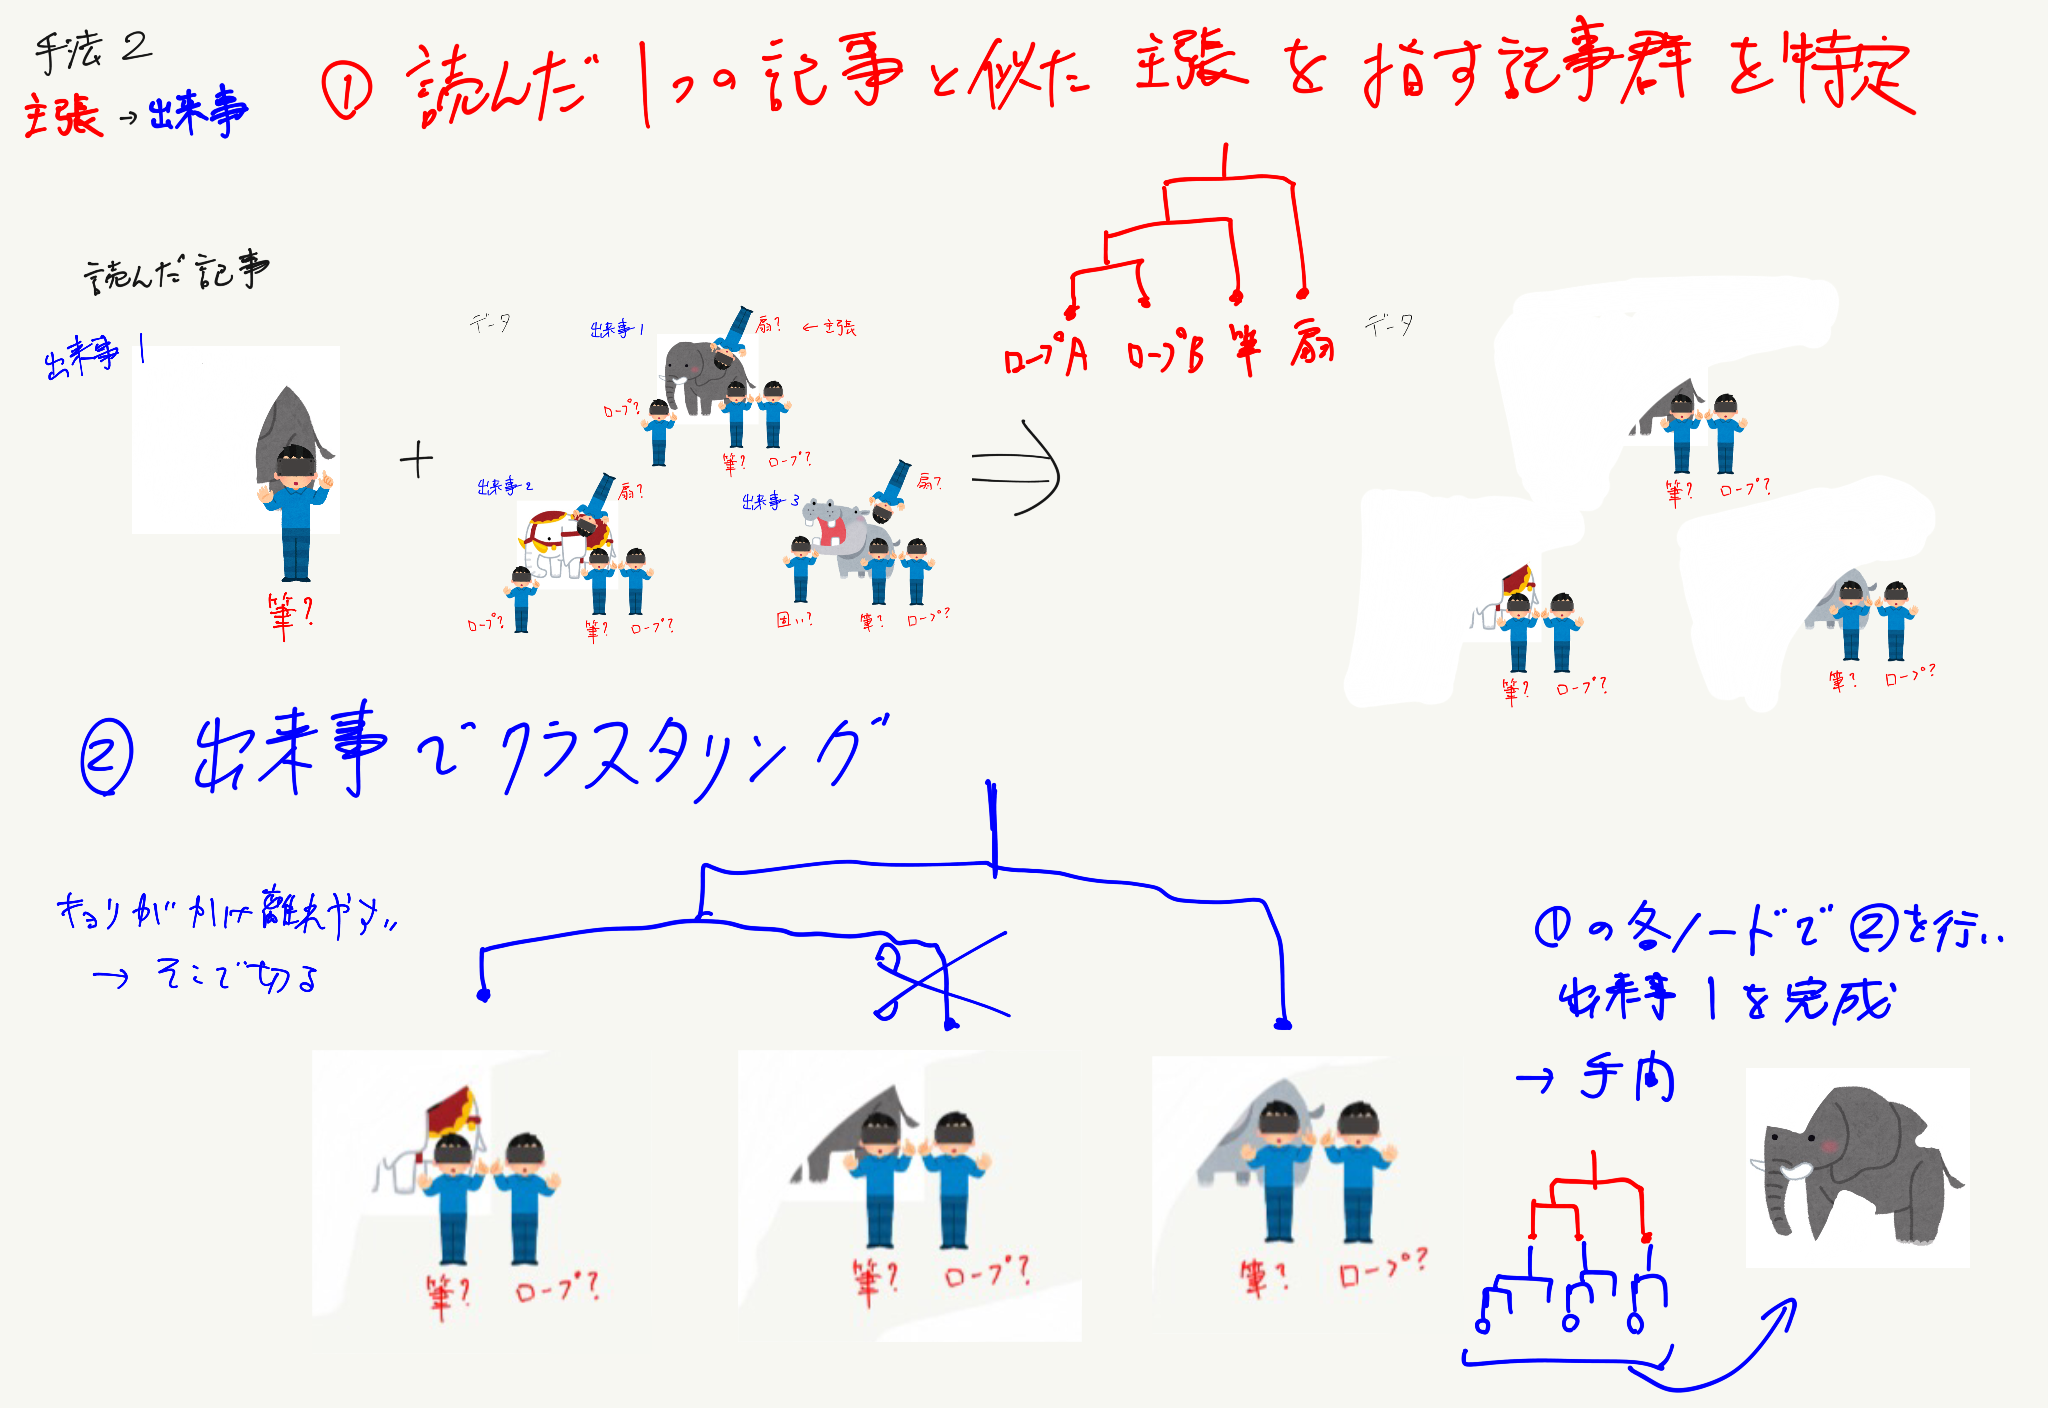 手法2
主張→出来事
① 読んだ1つの記事と似た主張を指す記事群を特定
読んだ記事
出来事1
筆?
+
データ
出来事1
扇? ←主張
ロープ?
筆? ロープ?
出来事2
扇?
ロープ?
筆? ロープ?
出来事3
扇?
囲い?
筆? ロープ?
ロープA ロープB 筆 扇
データ
筆? ロープ?
筆? ロープ?
筆? ロープ?
② 出来事でクラスタリング
→ そこで切る
筆? ロープ?
筆? ロープ?
筆? ロープ?
①の各ノードで②を行い
出来事1を完成